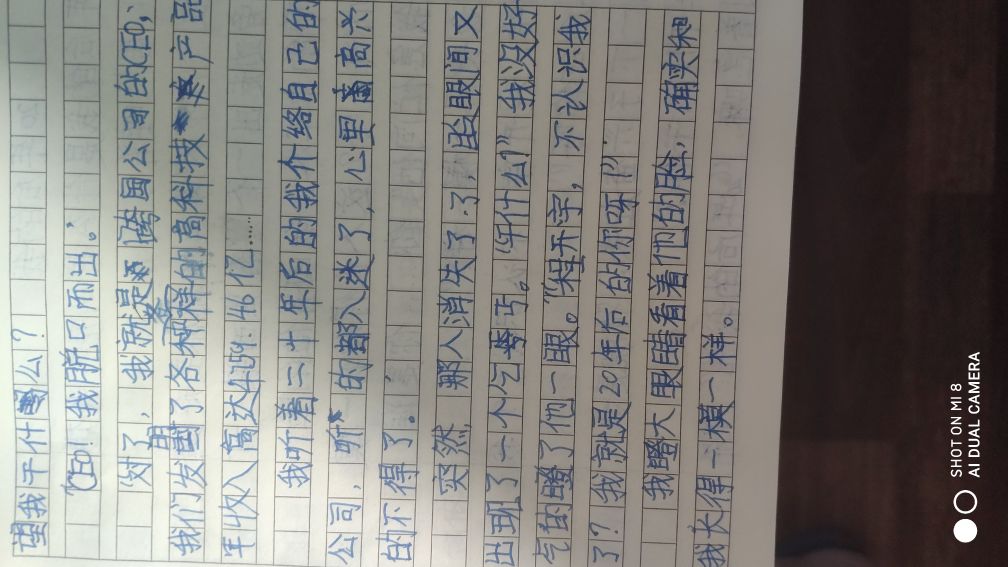 望我干什么?
"CEO!"我脱口而出。
"对了,我就是跨国公司的CEO,
我们发明了各种各样的高科技产品
年收入高达459.46亿……
我听着二十年后的我介绍自己的
公司,听的都入迷了,心里高兴
的不得了。
突然,那人消失了了,坐眼间又
出现了一个乞丐。"干什么?"我没好
气的瞪了他一眼。"程开宇,不认识我
了?我就是20年后的你呀!"
我瞪大眼睛看着他的脸,确实和
我长得一模一样。
SHOT ON MI 8
AI DUAL CAMERA